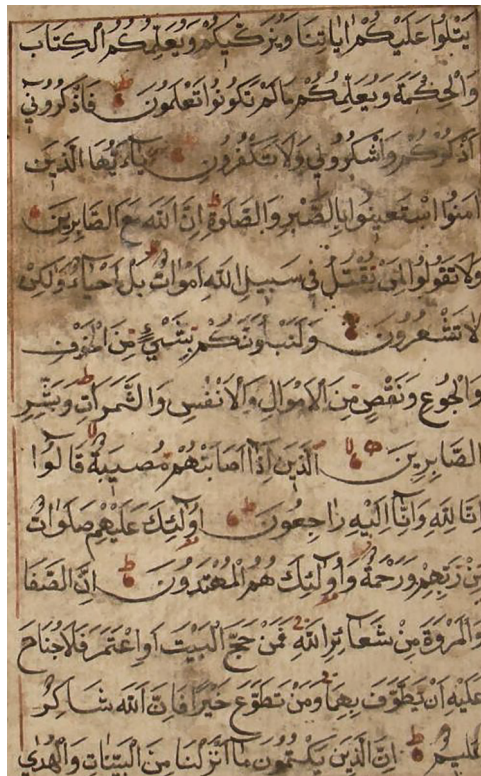 يَتْلُوا عَلَيْكُمْ اٰيَاتِنَا وَيُزَكِّيكُمْ وَيُعَلِّمُكُمُ الْكِتَابَ
وَالْحِكْمَةَ وَيُعَلِّمُكُمْ مَا لَمْ تَكُونُوا تَعْلَمُونَ ط فَاذْكُرُونِٓي
اَذْكُرْكُمْ وَاشْكُرُولِي وَلَا تَكْفُرُونِ يَآاَيُّهَا الَّذِينَ
اٰمَنُوا اسْتَعِينُوا بِالصَّبْرِ وَالصَّلَوٰةِ ط اِنَّ اللهَ مَعَ الصَّابِرِينَ
وَلَا تَقُولُوا لِمَنْ يُقْتَلُ فِي سَبِيلِ اللهِ اَمْوَاتٌ ط بَلْ اَحْيَآءٌ وَلٰكِنْ
لَا تَشْعُرُونَ وَلَنَبْلُوَنَّكُمْ بِشَيْءٍ مِنَ الْخَوْفِ
وَالْجُوعِ وَنَقْصٍ مِنَ الْاَمْوَالِ وَالْاَنْفُسِ وَالثَّمَرَاتِ ط وَبَشِّرِ
الصَّابِرِينَ لا اَلَّذِينَ اِذَآ اَصَابَتْهُمْ مُصِيبَةٌ لا قَالُٓوا
اِنَّا لِلهِ وَاِنَّآ اِلَيْهِ رَاجِعُونَ ط اُولٰٓئِكَ عَلَيْهِمْ صَلَوَاتٌ
مِنْ رَبِّهِمْ وَرَحْمَةٌ وَاُولٰٓئِكَ هُمُ الْمُهْتَدُونَ ط اِنَّ الصَّفَا
وَالْمَرْوَةَ مِنْ شَعَآئِرِ اللهِ ج فَمَنْ حَجَّ الْبَيْتَ اَوِ اعْتَمَرَ فَلَا جُنَاحَ
عَلَيْهِ اَنْ يَطَّوَّفَ بِهِمَا ط وَمَنْ تَطَوَّعَ خَيْرًا فَاِنَّ اللهَ شَاكِرٌ
عَلِيمٌ ط اِنَّ الَّذِينَ يَكْتُمُونَ مَآ اَنْزَلْنَا مِنَ الْبَيِّنَاتِ وَالْهُدٰي